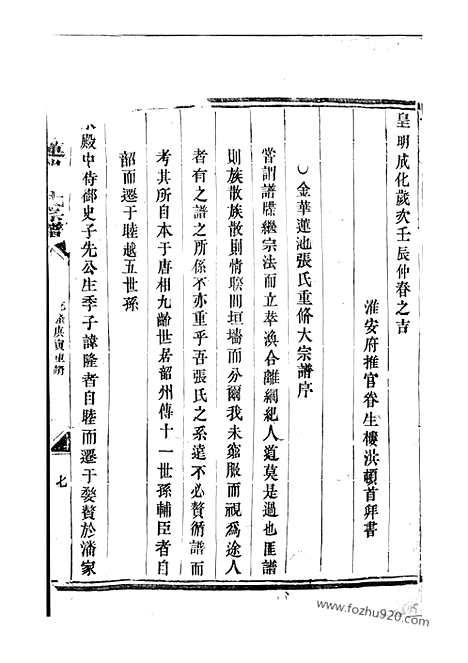 皇明成化歲次壬辰仲春之吉
淮安府推官眷生樓洪頓首拜書
金華蓮池張氏重修大宗譜序
嘗謂譜牒繼宗法而立萃渙合離綱紀人道莫是過也匪譜
則族散族散則情睽間垣墻而分爾我未窮服而視為途人
者有之譜之所係不亦重乎吾張氏之系遠不必贅循譜而
考其所自本于唐相九齡世居韶州傳十一世孫輔臣者自
韶而遷于睦越五世孫
殿中侍御史子先公生季子諱隆者自睦而遷于婺贅於潘家
蓮 氏宗譜
七
www.fozhu920.com